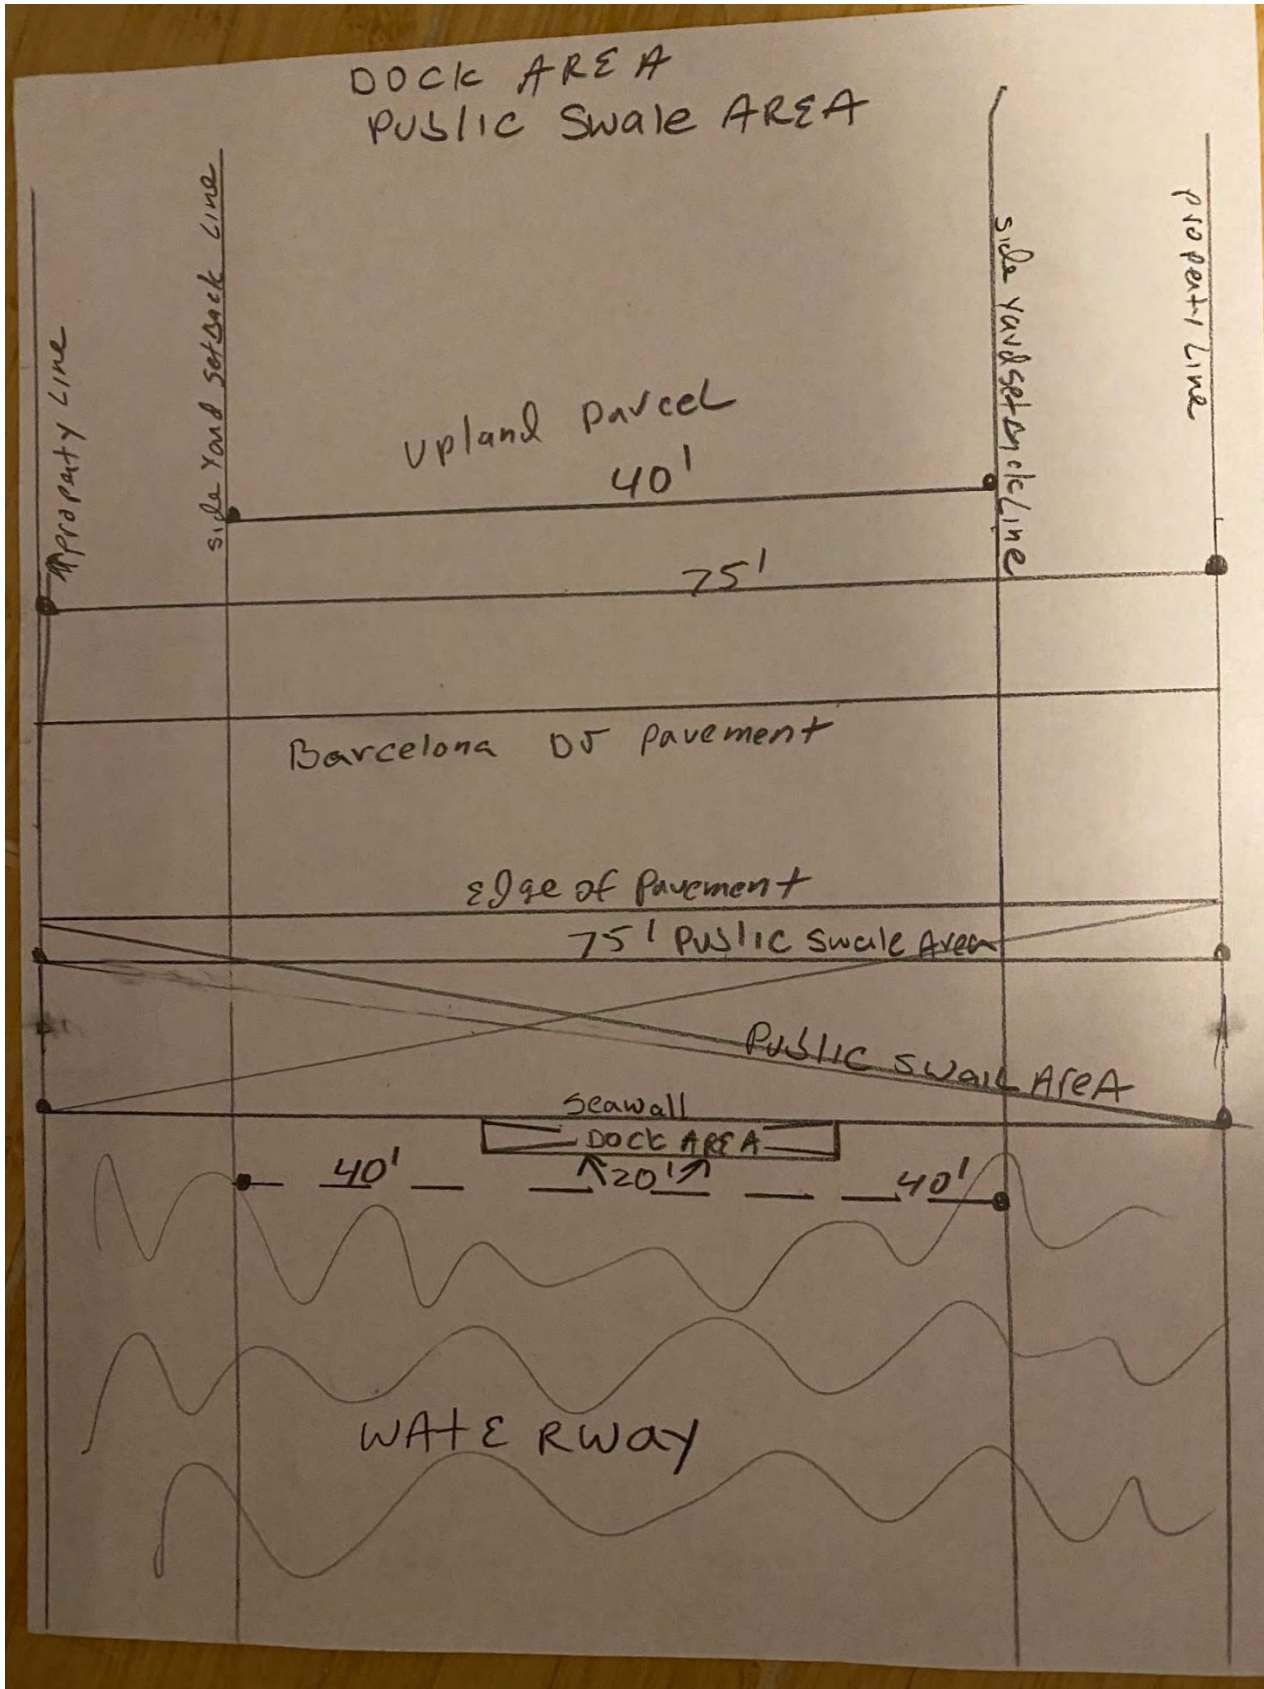 DOCK AREA
PUBLIC Swale AREA
property Line
side Yard setback Line
side Yard setback Line
property Line
Upland Parcel
40'
75'
Barcelona Dr pavement
Edge of Pavement
75' PUBLIC Swale Area
PUBLIC SWAIL AREA
Seawall
DOCK AREA
40' 20' 40'
WATERWAY